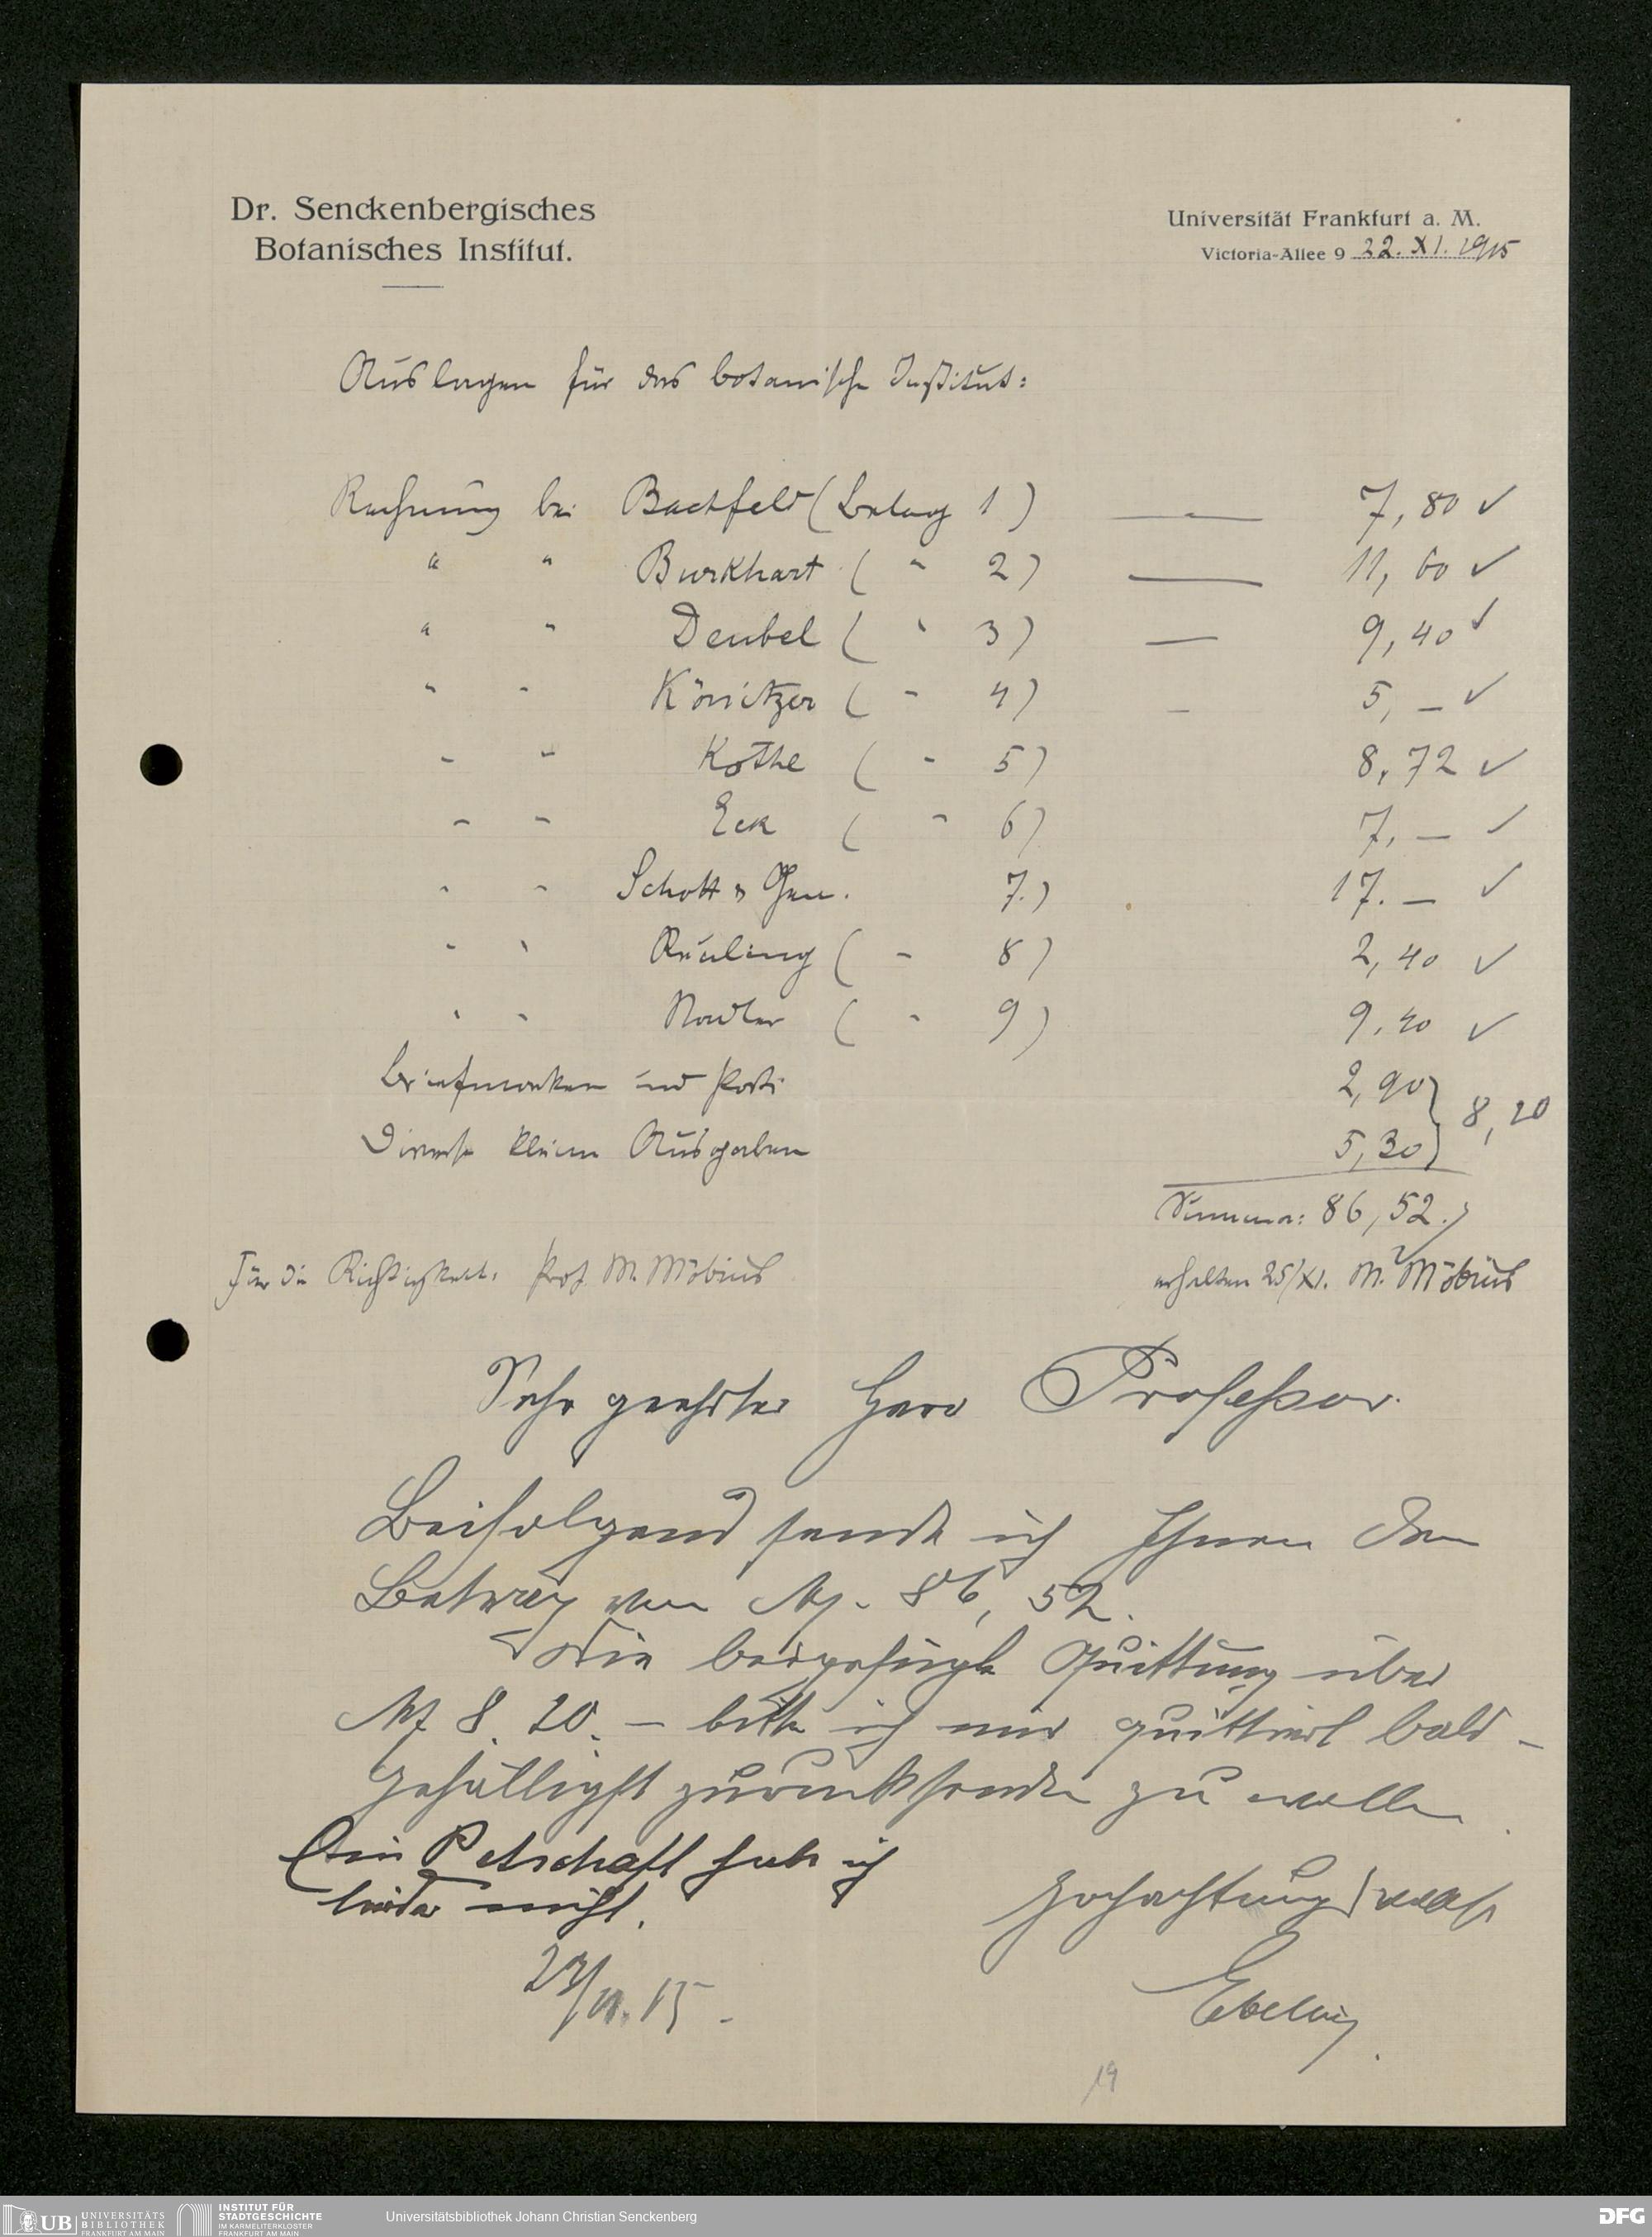 Dr. Senckenbergisches
Botanisches Institut.
Universität Frankfurt a. M.
Victoria-Allee 9 22. XI. 1915
Auslagen für das botanische Institut:
Rechnung bei Bachfeld (Beleg 1) — 7,80 ✓
" " Burkhart ( " 2) — 11,60 ✓
" " Deubel ( " 3) — 9,40 ✓
" " Könitzer ( " 4) — 5,— ✓
" " Kothe ( " 5) 8,72 ✓
" " Eck ( " 6) 7,— ✓
" " Schott & Gen. 7.) 17.— ✓
" " Reuling ( " 8) 2,40 ✓
" " Nadler ( " 9) 9,40 ✓
Briefmarken und Porti 2,90
8,20
Diverse kleine Ausgaben 5,30
Summa: 86,52.
Für die Richtigkeit: Prof. M. Möbius
erhalten 25/XI. M. Möbius
Sehr geehrter Herr Professor.
Beifolgend sende ich Ihnen den
Betrag von M. 86,52.
Die beigefügte Quittung über
M 8.20.— bitte ich mir quittiert bald-
gefälligst zurücksenden zu wollen.
Ein Petschaft habe ich
leider nicht.
Hochachtungsvoll
Ebeling.
/11.15.
19
UB UNIVERSITÄTS
BIBLIOTHEK
FRANKFURT AM MAIN
INSTITUT FÜR
STADTGESCHICHTE
IM KARMELITERKLOSTER
FRANKFURT AM MAIN
Universitätsbibliothek Johann Christian Senckenberg
DFG